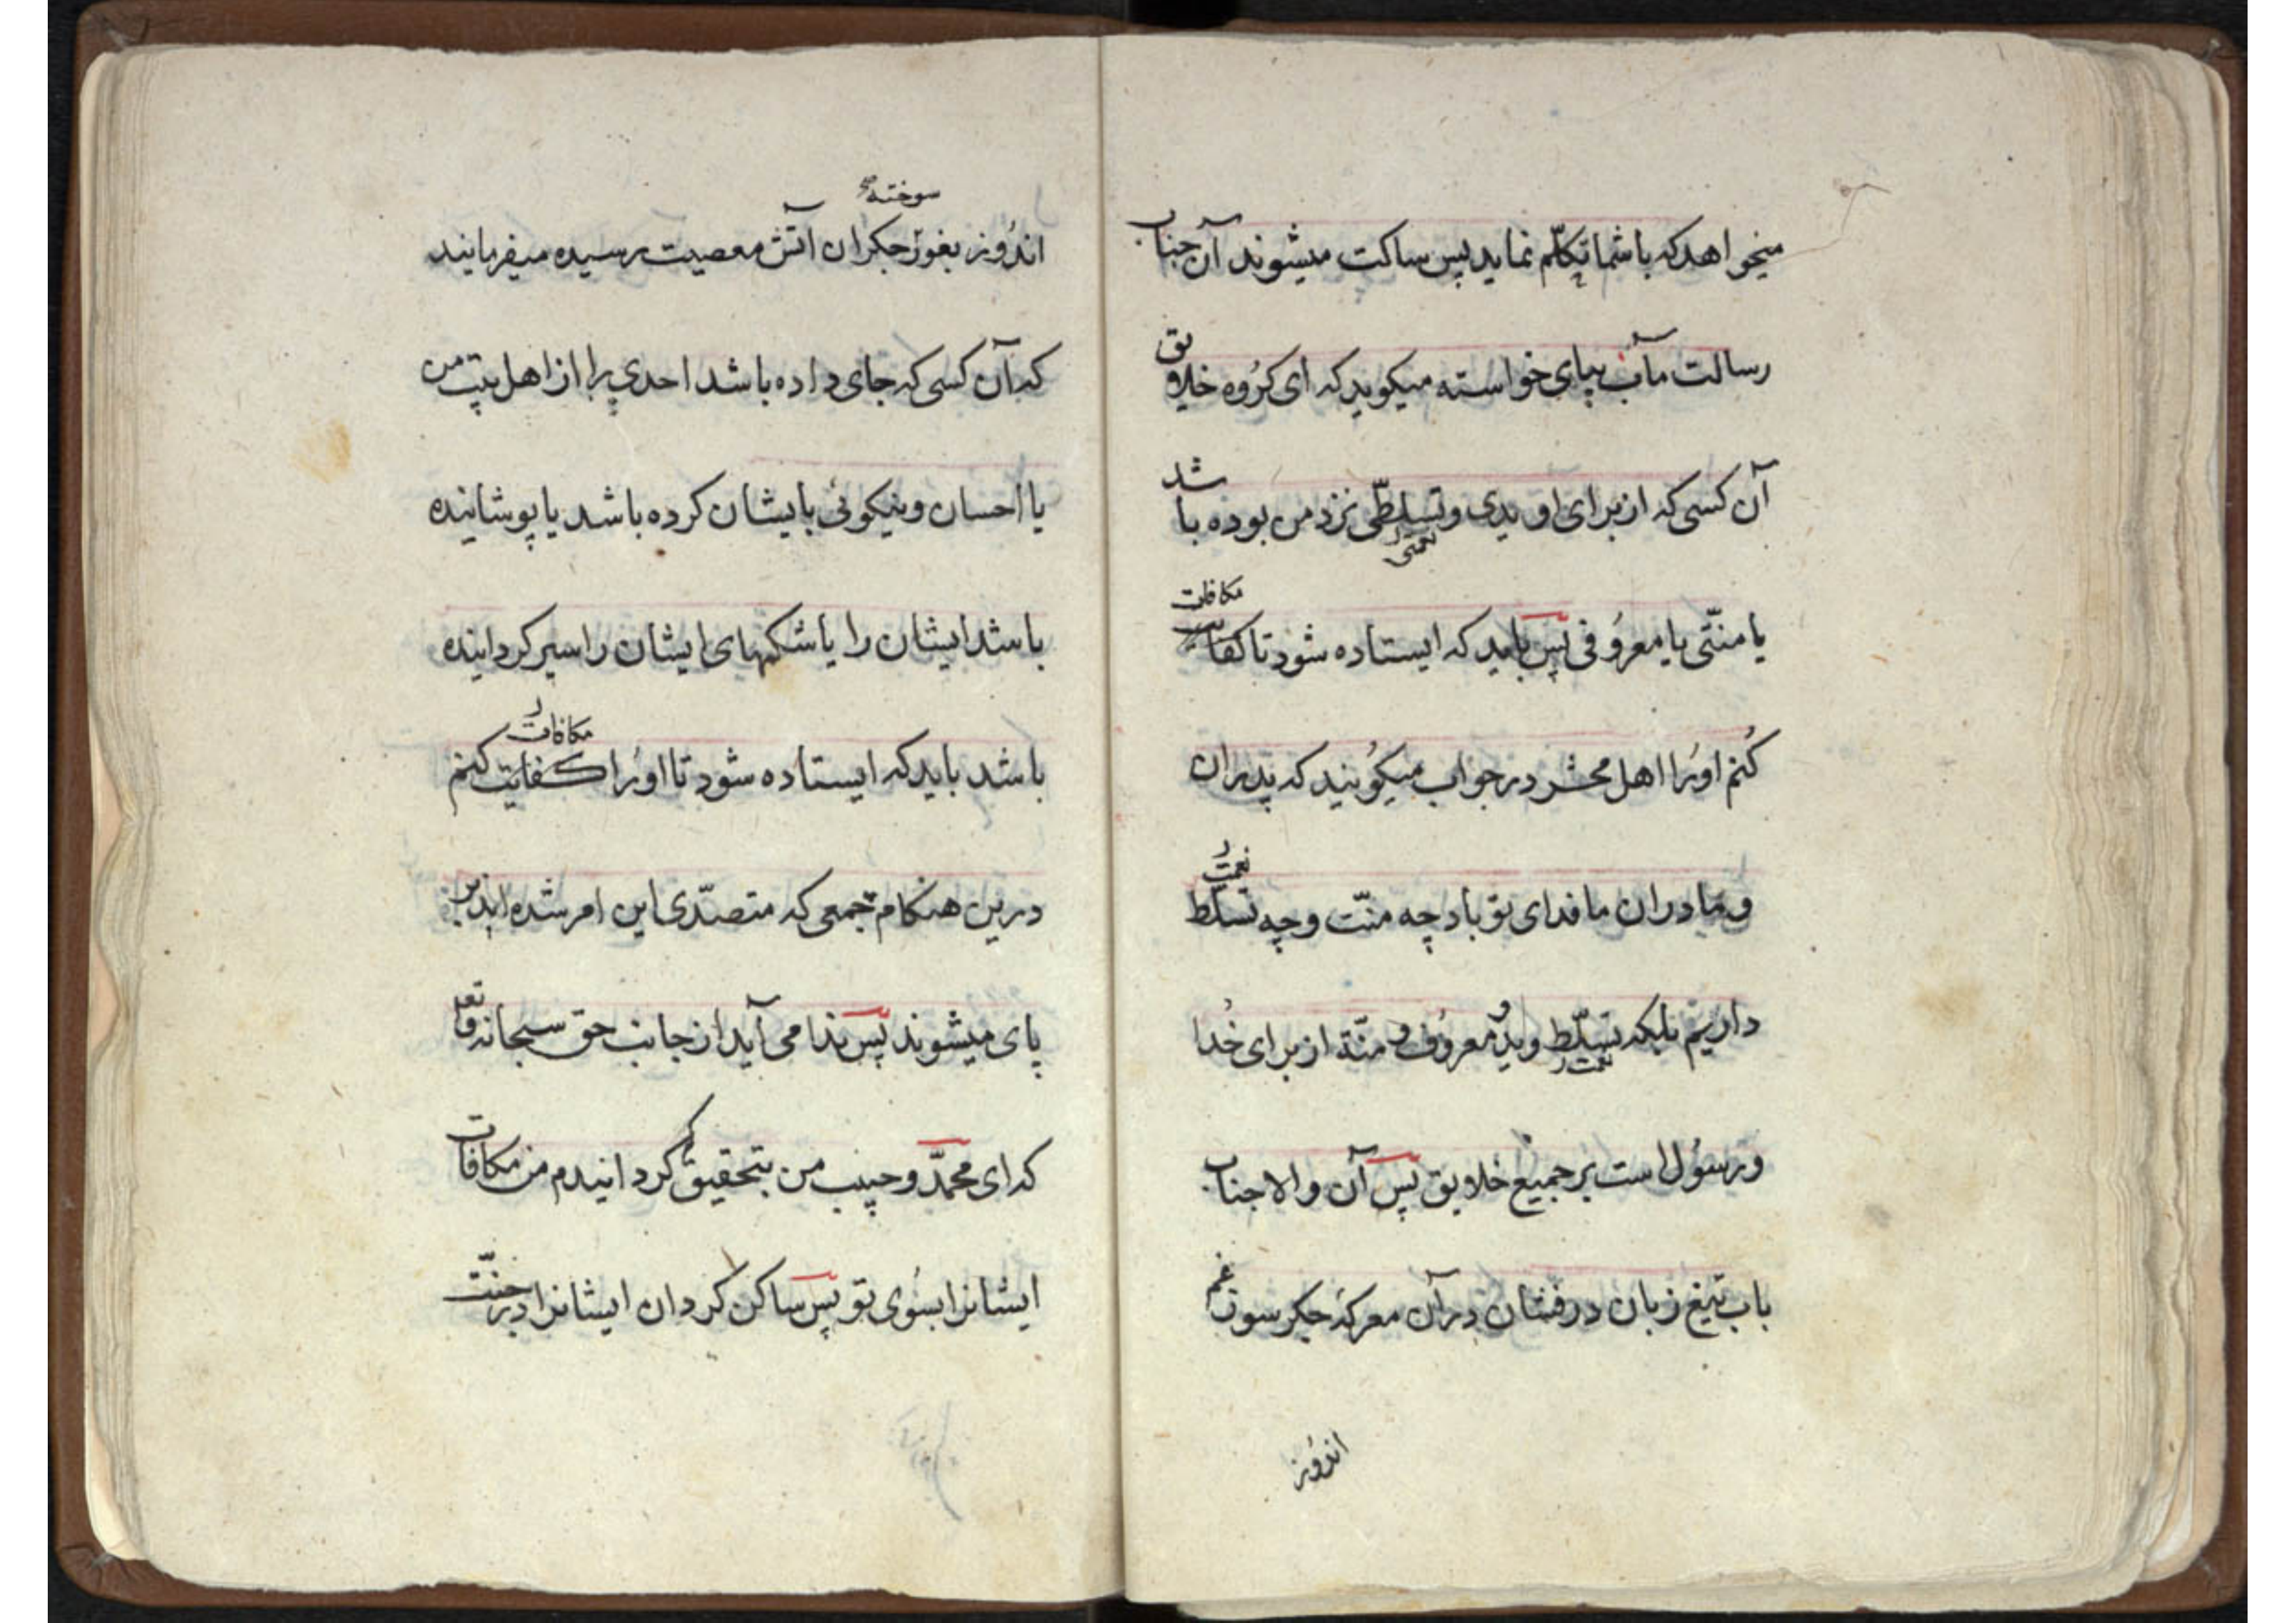 میخواهد که با شما تکلّم نماید پس ساکت میشوند آن جناب
رسالت مآب بپای خواسته میکوید که ای کرُوه خلایق
آن کسی که از برای او یدی و تسلطّی نزد من بوده باشد
نعمتی
مکافات
یا منّتی یا معرُوفی پس باید که ایستاده شود تا کفایت
کُنم اوُرا اهل محشر در جواب میکوُیند که پدران
نعمت
و مادران ما فدای تو باد چه منّت و چه تسلّط
داریم بلکه تسلّط و ید و معرُوف و منّة از برای خُدا
نعمت
و رسُول است بر جمیع خلایق پس آن والا جناب
باب تیغ زبان درفشان در آن معرکهٔ جکر سوز غم
اندُوز
سوخته
اندُوز بغور جکران آتش معصیت رسیده میفرمایند
که آن کسی که جای داده باشد احدی را از اهل بیت من
یا احسان و نیکوئی بایشان کرده باشد یا پوشانیده
باشد ایشان را یا شکمهای ایشان را سیر کردانیده
مکافات
باشد باید که ایستاده شود تا اوُرا کفایت کنم
درین هنکام جمعی که متصدّی این امر شده اند بر
پای میشوند پس ندا می آید از جانب حق سبحانه و تع
که ای محمّد و حبیب من بتحقیق که کردانیدم من مکافات
ایشانرا بسُوی تو پس ساکن کردان ایشانرا در جنّت